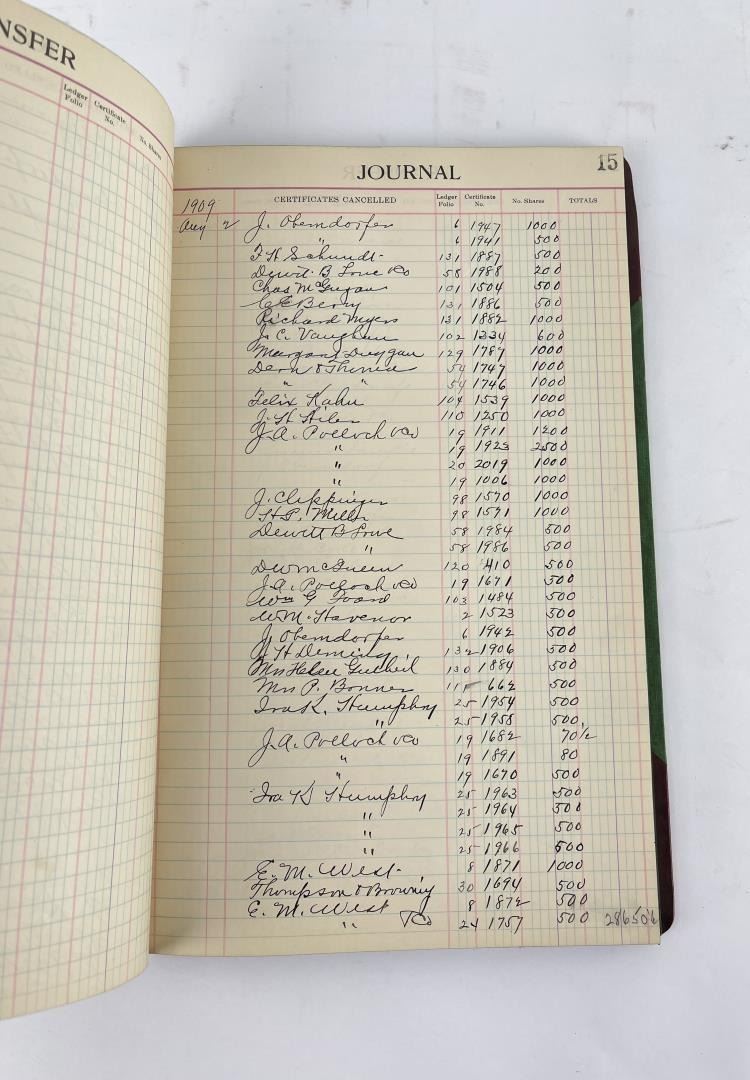 NSFER
Ledger Folio Certificate No. No. Shares
JOURNAL 15
CERTIFICATES CANCELLED Ledger Folio Certificate No. No. Shares TOTALS
1909
Aug 2 J. Oberndorfer 6 1947 1000
" 6 1941 500
F H Schundt 131 1887 500
Dewit B Lowe & Co 58 1988 200
Chas McGugan 101 1504 500
C E Berry 131 1886 500
Richard Myers 131 1882 1000
J. C. Vaughan 102 1334 600
Margaret Duggan 129 1787 1000
Dern & 54 1747 1000
" " 54 1746 1000
Felix Kahn 104 1539 1000
J. H. 110 1250 1000
J. A. Pollock & Co 19 1911 1200
" 19 1923 2500
" 20 2019 1000
" 19 1006 1000
J. Clippinger 98 1570 1000
H. P. Miller 98 1571 1000
Dewitt B Lowe 58 1984 500
" 58 1986 500
D W McQueen 120 410 500
J. A. Pollock & Co 19 1671 500
Wm G Foard 103 1484 500
W. M. Havenor 2 1523 500
J. Oberndorfer 6 1942 500
H Deming 132 1906 500
Mrs Helen Gutheil 130 1884 500
Mrs P. Bonner 111 662 500
Ira K. Humphry 25 1954 500
" 25 1958 500
J. A. Pollock & Co 19 1682 70½
" 19 1891 80
" 19 1670 500
Ira K Humphry 25 1963 500
" 25 1964 500
" 25 1965 500
" 25 1966 500
E. M. West 8 1871 1000
Thompson & Browning 30 1694 500
E. M. West & Co 8 1872 500
" 24 1757 500 28650½